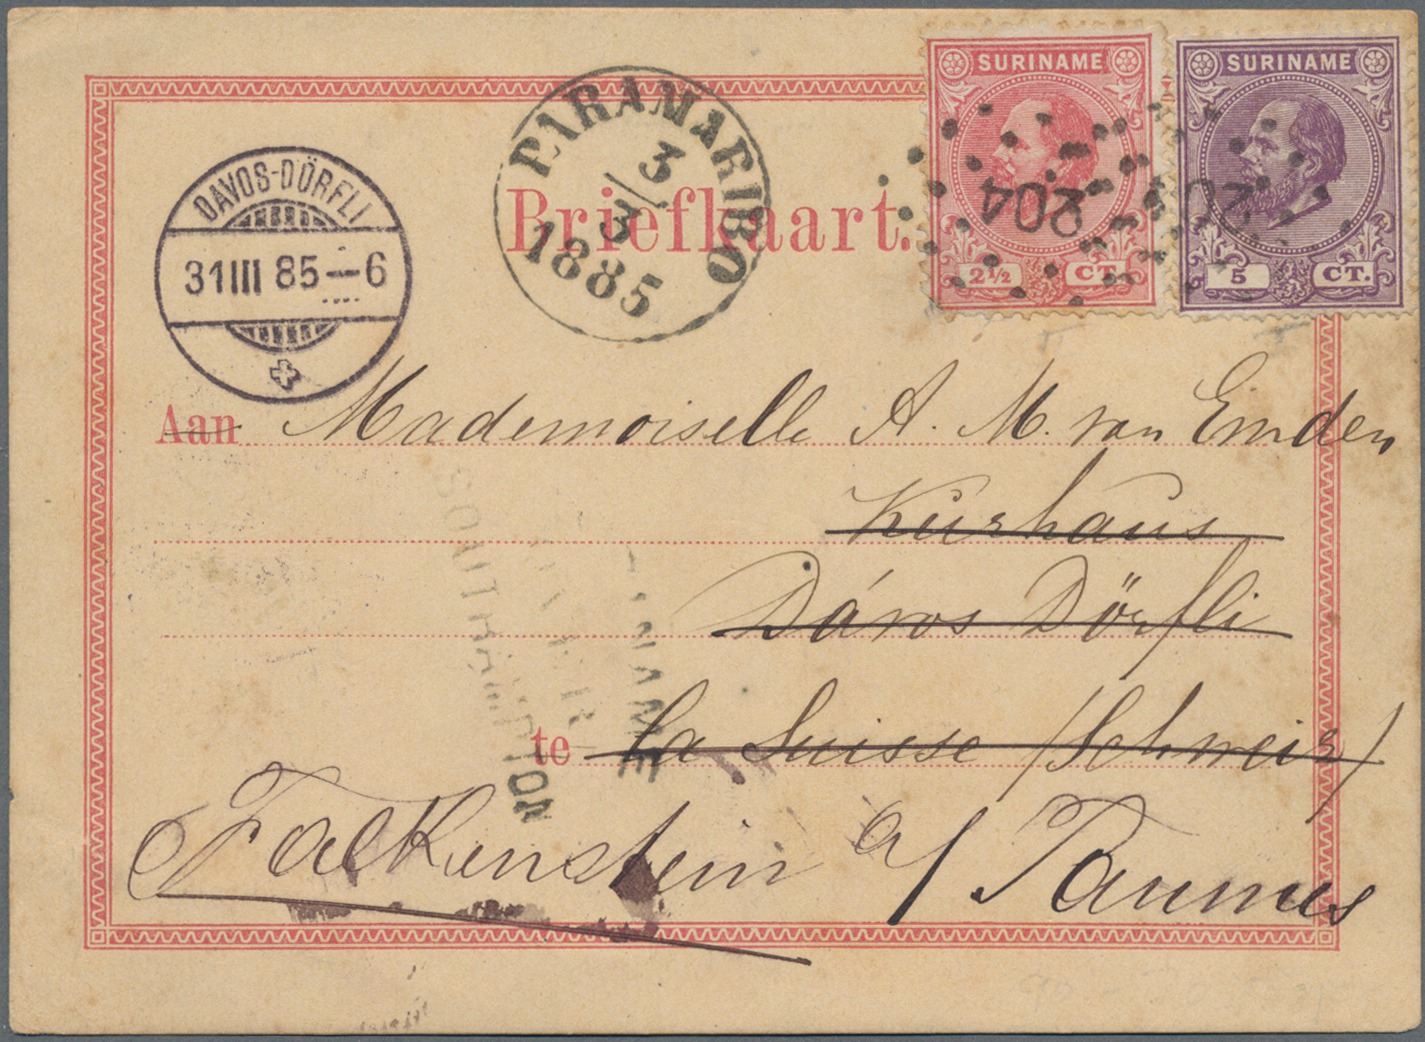 SURINAME
SURINAME
2½ CT.
5 CT.
204
PARAMARIBO
3/3
1885
DAVOS-DÖRFLI
31 III 85-6
Briefkaart.
Aan Mademoiselle A. M. van Emden,
Kurhaus
Dávos Dörfli
te La Suisse (Schweiz)
Falkenstein a/Taunus
SOUTHAMPTON